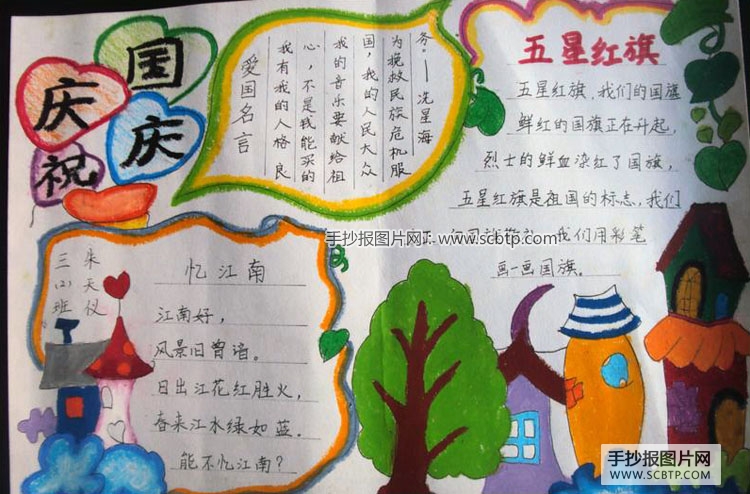 国
庆
庆
祝
爱国名言
我有我的人格良
心,不是钱能买的
我的音乐要献给祖
国,我的人民大众
为挽救民族危机服
务。—冼星海
五星红旗
五星红旗,我们的国旗
鲜红的国旗正在升起,
烈士的鲜血染红了国旗,
五星红旗是祖国的标志,我们
我们用彩笔
画一画国旗。
手抄报图片网: www.scbtp.com
三(2)班
朱天仪
忆江南
江南好,
风景旧曾谙。
日出江花红胜火,
春来江水绿如蓝。
能不忆江南?
手抄报图片网
SCBTP.COM